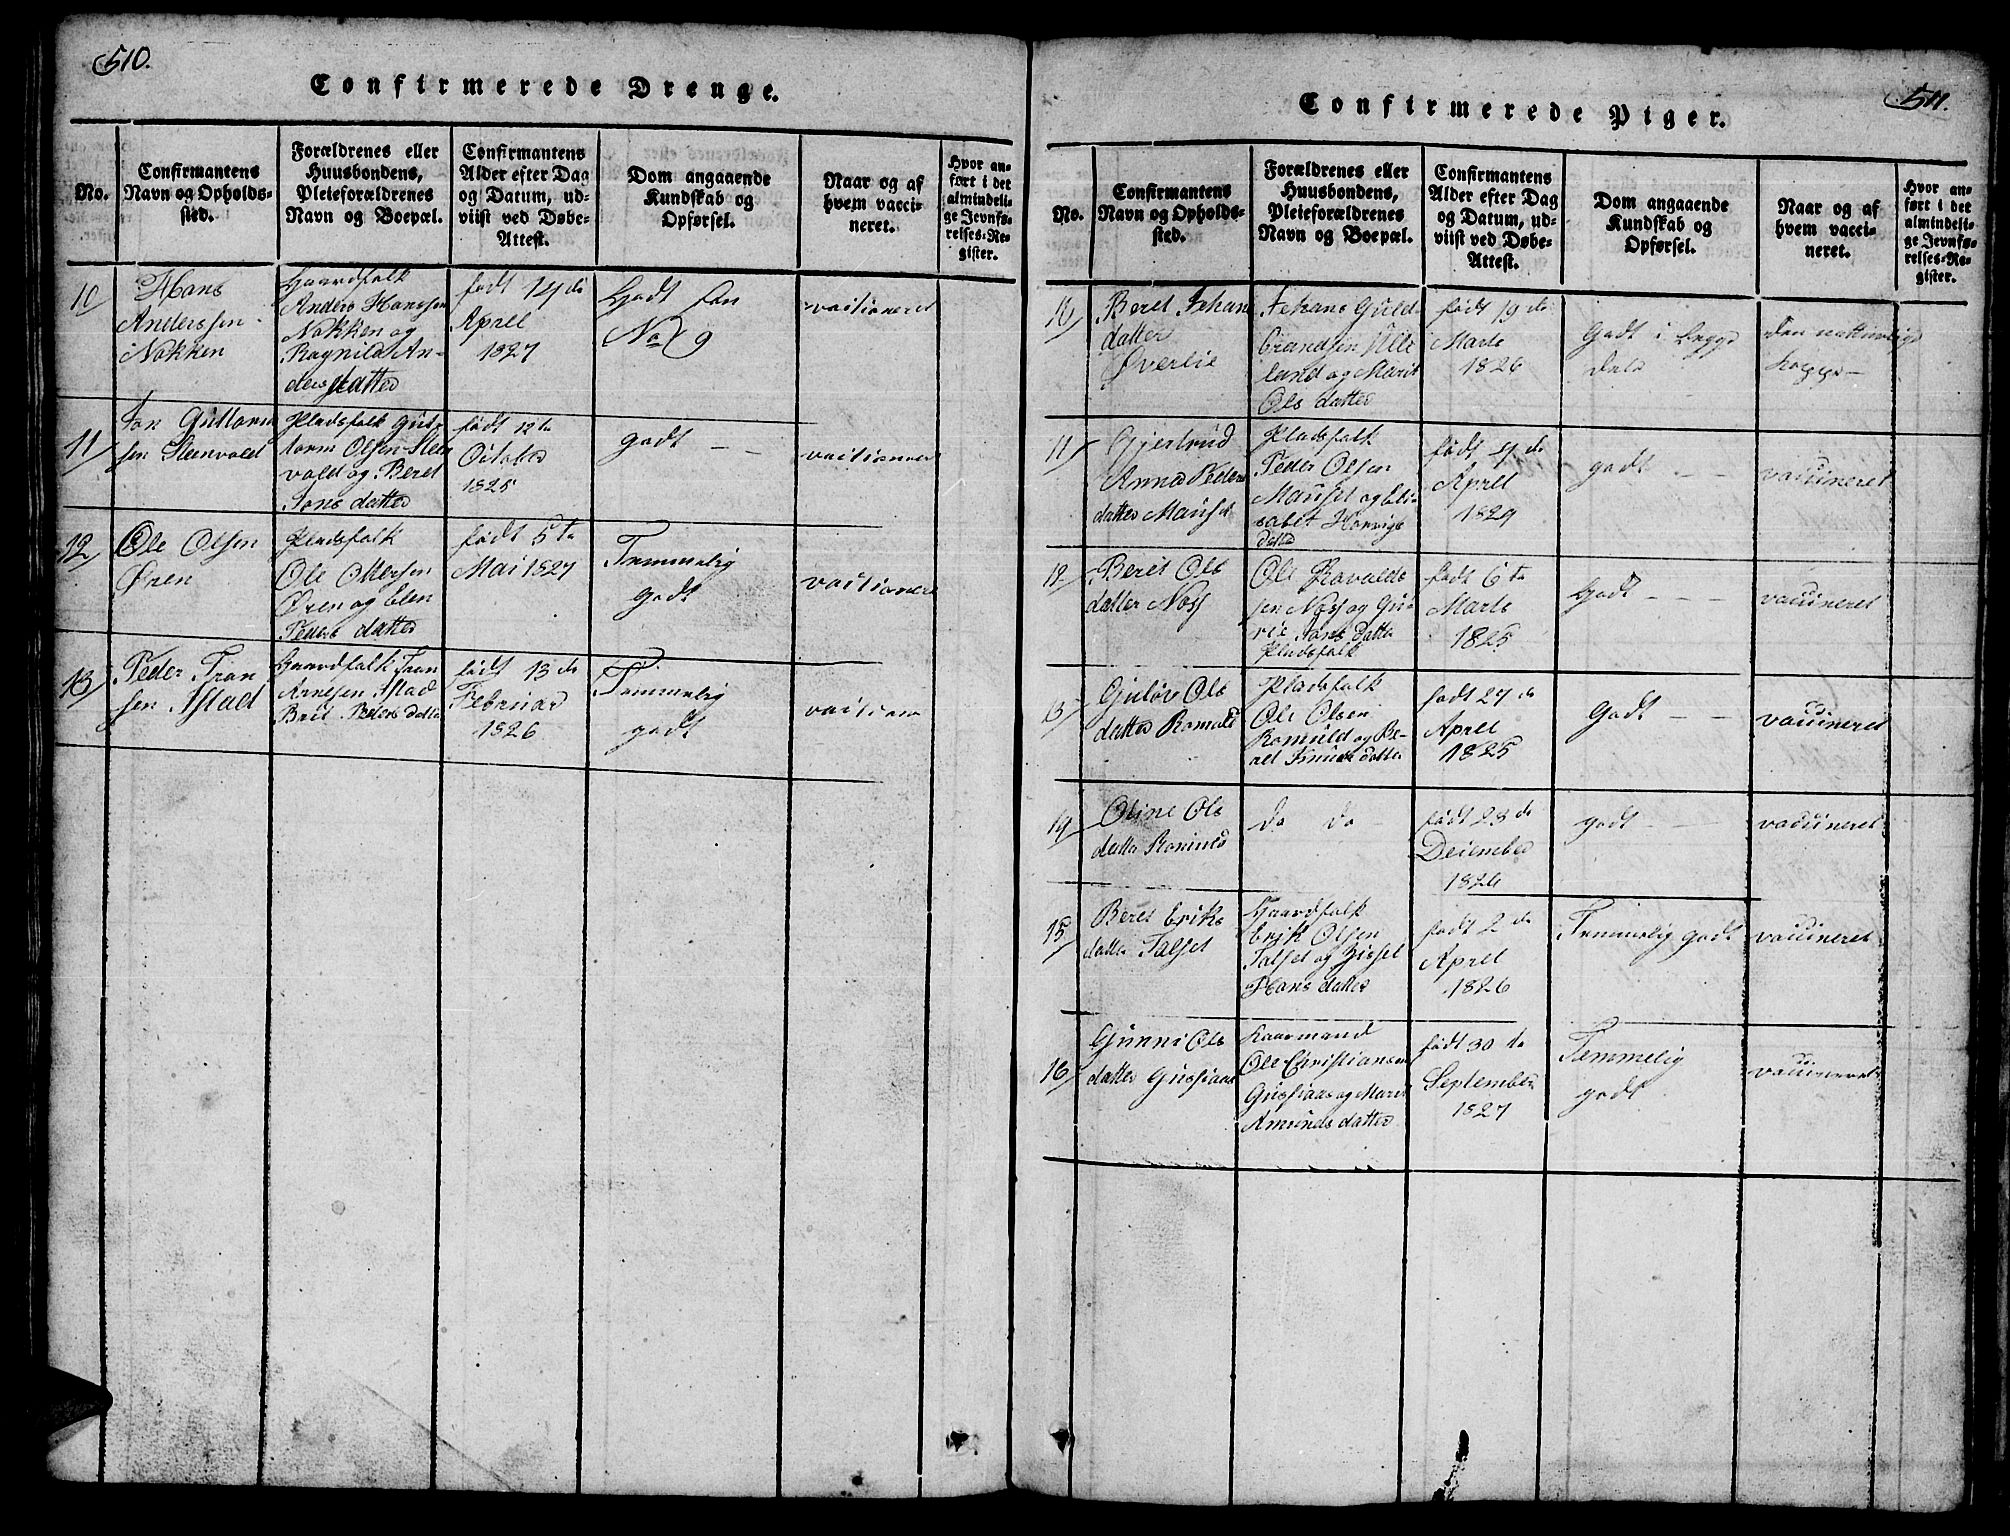 510.
Confirmerede Drenge.
No.
Confirmantens
Navn og Opholds-
sted.
Forældrenes eller
Huusbondens,
Pleieforældrenes
Navn og Boepæl.
Confirmantens
Alder efter Dag
og Datum, ud-
viist ved Døbe-
Attest.
Dom angaaende
Kundskab og
Opførsel.
Naar og af
hvem vacci-
neret.
Hvor an-
ført i det
almindeli-
ge Jevnfø-
relses-Re-
gister.
10
Hans
Anderssen
Nokken
Gaardfolk
Anders Hanssen
Nokken og
Ragnild An-
ders datter
født 14 de
April
1827
Godt som
No 9
vacitioneret
11
Jon Guttorm
sen Steenvold
Pladsfolk Gut-
torm Olsen Steen
vold og Beret
Jons datter
født 12 te
Octobr
1825
godt
vacitioneret
12
Ole Olsen
Øren
Pladsfolk
Ole Ottersen
Øren og Elen
Peders datter
født 5 te
Mai 1827
Temmelig
godt
vacitioneret
13
Peder Tron
sen Astad
Gaardfolk Tron
Arnesen Astad
Brit Peders datter
født 13 de
Februar
1826
Temmelig
godt
vacitioner
511.
Confirmerede Piger.
No.
Confirmantens
Navn og Opholds-
sted.
Forældrenes eller
Huusbondens,
Pleieforældrenes
Navn og Boepæl.
Confirmantens
Alder efter Dag
og Datum, ud-
viist ved Døbe-
Attest.
Dom angaaende
Kundskab og
Opførsel.
Naar og af
hvem vacci-
neret.
Hvor an-
ført i det
almindeli-
ge Jevnfø-
relses-Re-
gister.
10
Beret Johans
datter
Øverlie
Johans Guld-
brandsen Ulle
land og Marit
Ols datter
født 19 de
Marts
1826
Godt i begge
dele
den naturlige
koppe
11
Gjertrud
Anna Peders
datter Mauset
Pladsfolk
Peder Olsen
Mauset og Eli-
sabet Hanvigs
datter
født 4 de
April
1829
godt
vaccineret
12
Berit Ols
datter Noss
Ole Havalds
sen Noss og Gu-
rie Jons datter
Pladsfolk
født 6 te
Marts
1825
Godt
vaccineret
13
Guløv Ols
datter Romuld
Pladsfolk
Ole Olsen
Romuld og Be-
ret Knuds datter
født 27 de
April
1825
Godt
vaccineret
14
Oline Ols
datter Romuld
do do
født 28 de
December
1826
godt
vaccineret
15
Beret Eriks
datter Talset
Gaardfolk
Erik Olsen
Talset og Zissel
Hans datter
født 2 de
April
1826
Temmelig godt
vaccineret
16
Gunni Ols
datter Gussiaas
Kaarmand
Ole Christiansen
Gussiaas og Marit
Amunds datter
født 30 te
September
1827
Temmelig
godt
vaccineret